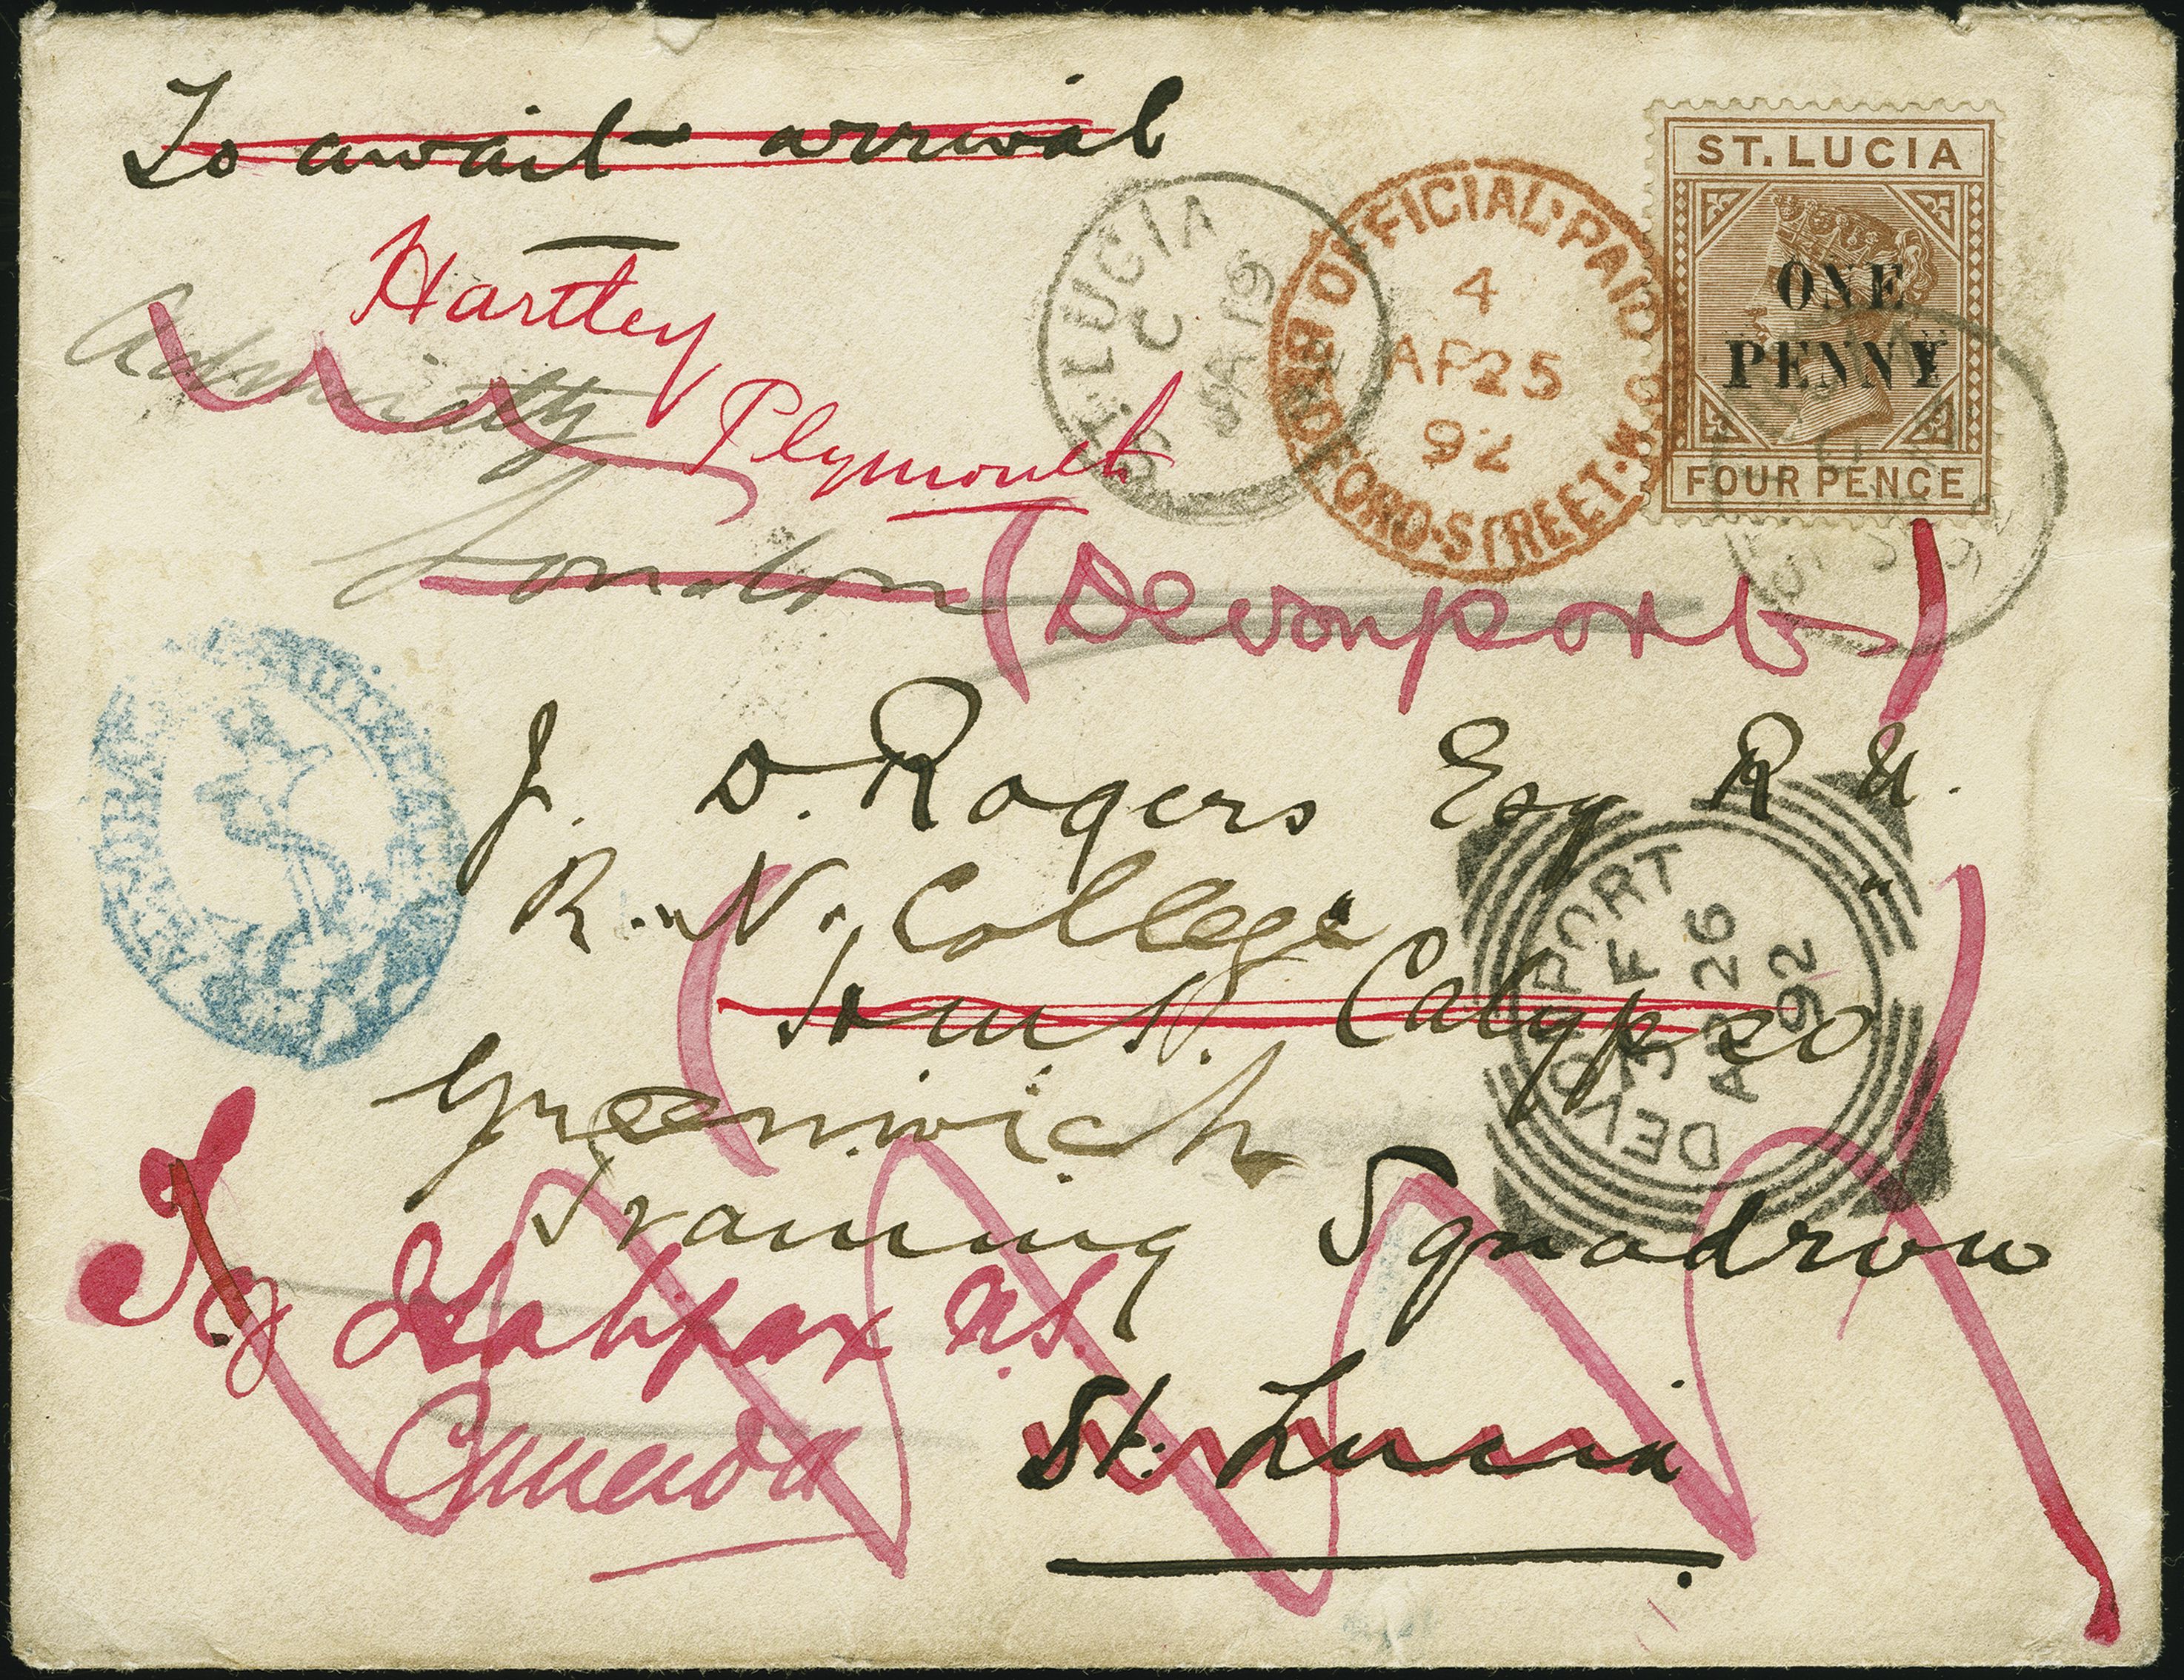 To await arrival
Hartley
Admiralty
Plymouth
London
(Devonport)
ST. LUCIA
ONE
PENNY
FOUR PENCE
ST. LUCIA
C
JA 19
OFFICIAL·PAID
4
AP 25
92
BEDFORD·STREET·W.C.
J. D. Rogers Esq R N.
R. N. College
H M S. Calypso
Greenwich
Training Squadron
DEVONPORT
F
AP 26
92
To Halifax N.S.
Canada
St. Lucia